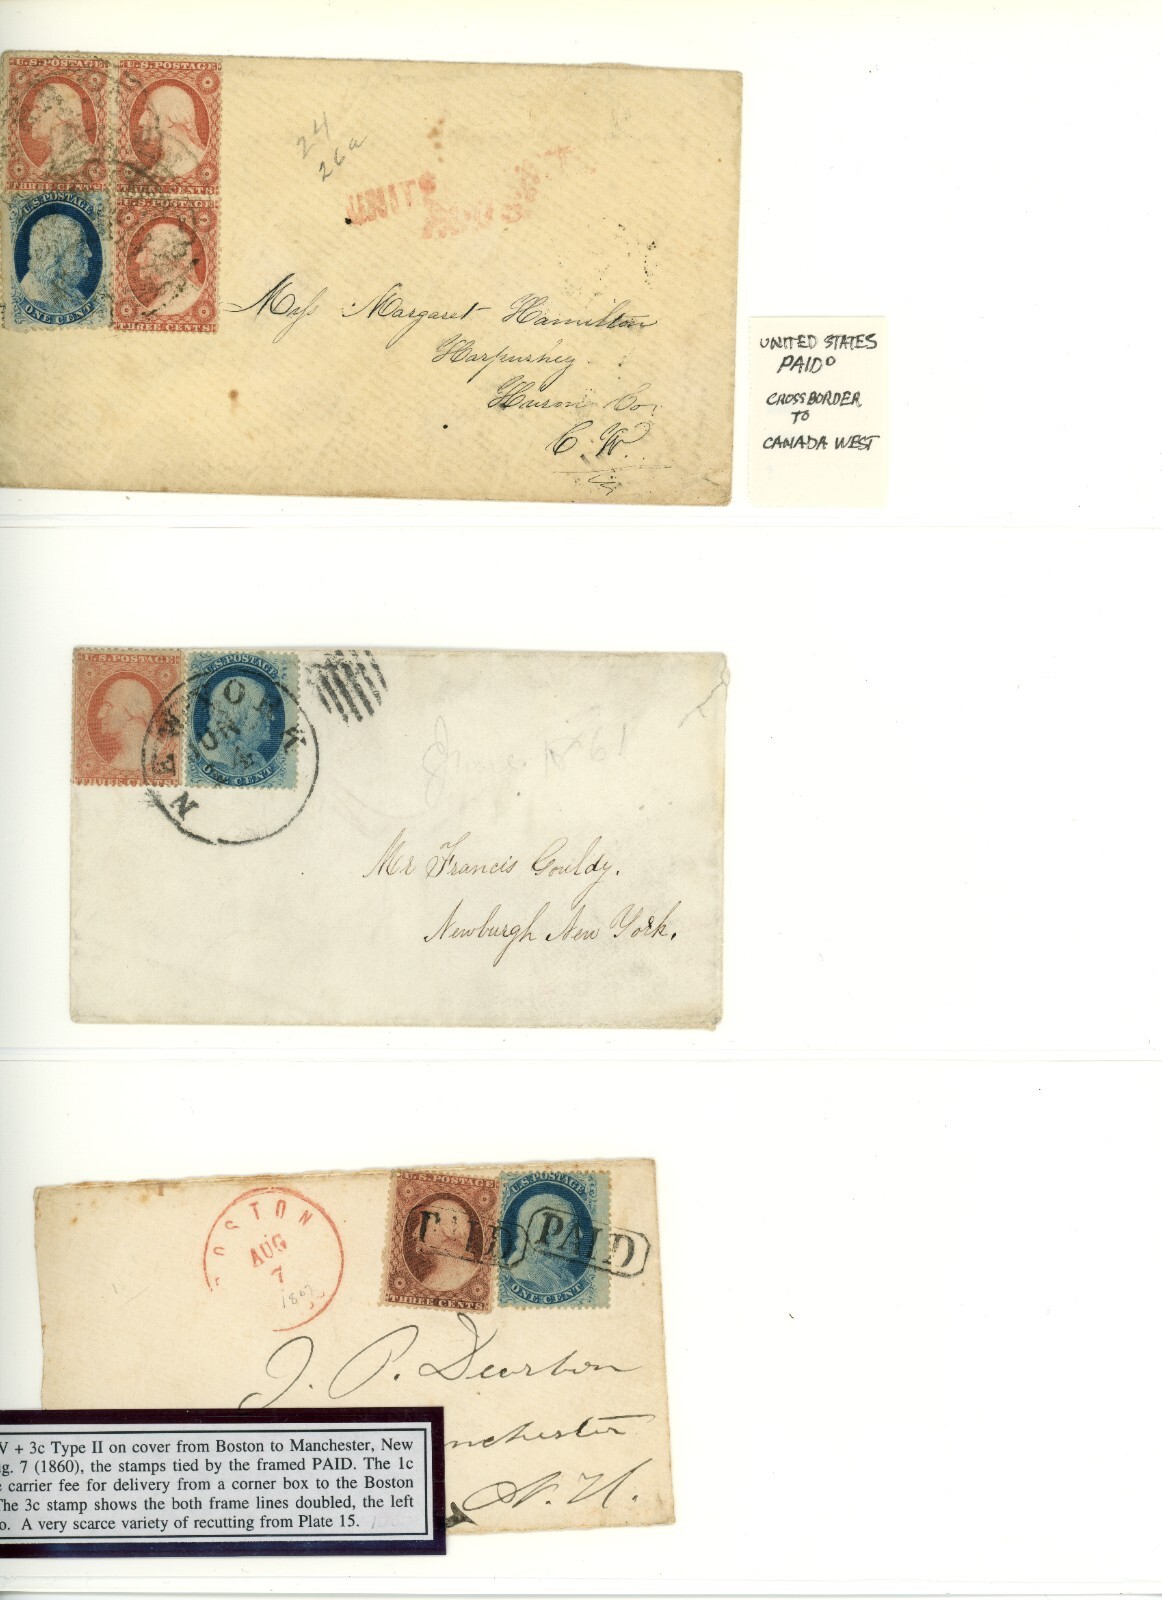 U.S. POSTAGE
U.S. POSTAGE
THREE CENTS
THREE CENTS
U.S. POSTAGE
U.S. POSTAGE
ONE CENT
THREE CENTS
24
26a
Miss Margaret Hamilton
Harpurhey
Huron Co.
C. W.
UNITED STATES
PAID
CROSSBORDER
TO
CANADA WEST
U.S. POSTAGE
U.S. POSTAGE
THREE CENTS
CENT
NEW YORK
June 1861
Mr Francis Gouldy.
Newburgh New York.
BOSTON
AUG
7
U.S. POSTAGE
U.S. POSTAGE
PAID PAID
THREE CENTS
ONE CENT
J. P. Dearborn
nchester
N. H.
V + 3c Type II on cover from Boston to Manchester, New
g. 7 (1860), the stamps tied by the framed PAID. The 1c
e carrier fee for delivery from a corner box to the Boston
The 3c stamp shows the both frame lines doubled, the left
o. A very scarce variety of recutting from Plate 15.